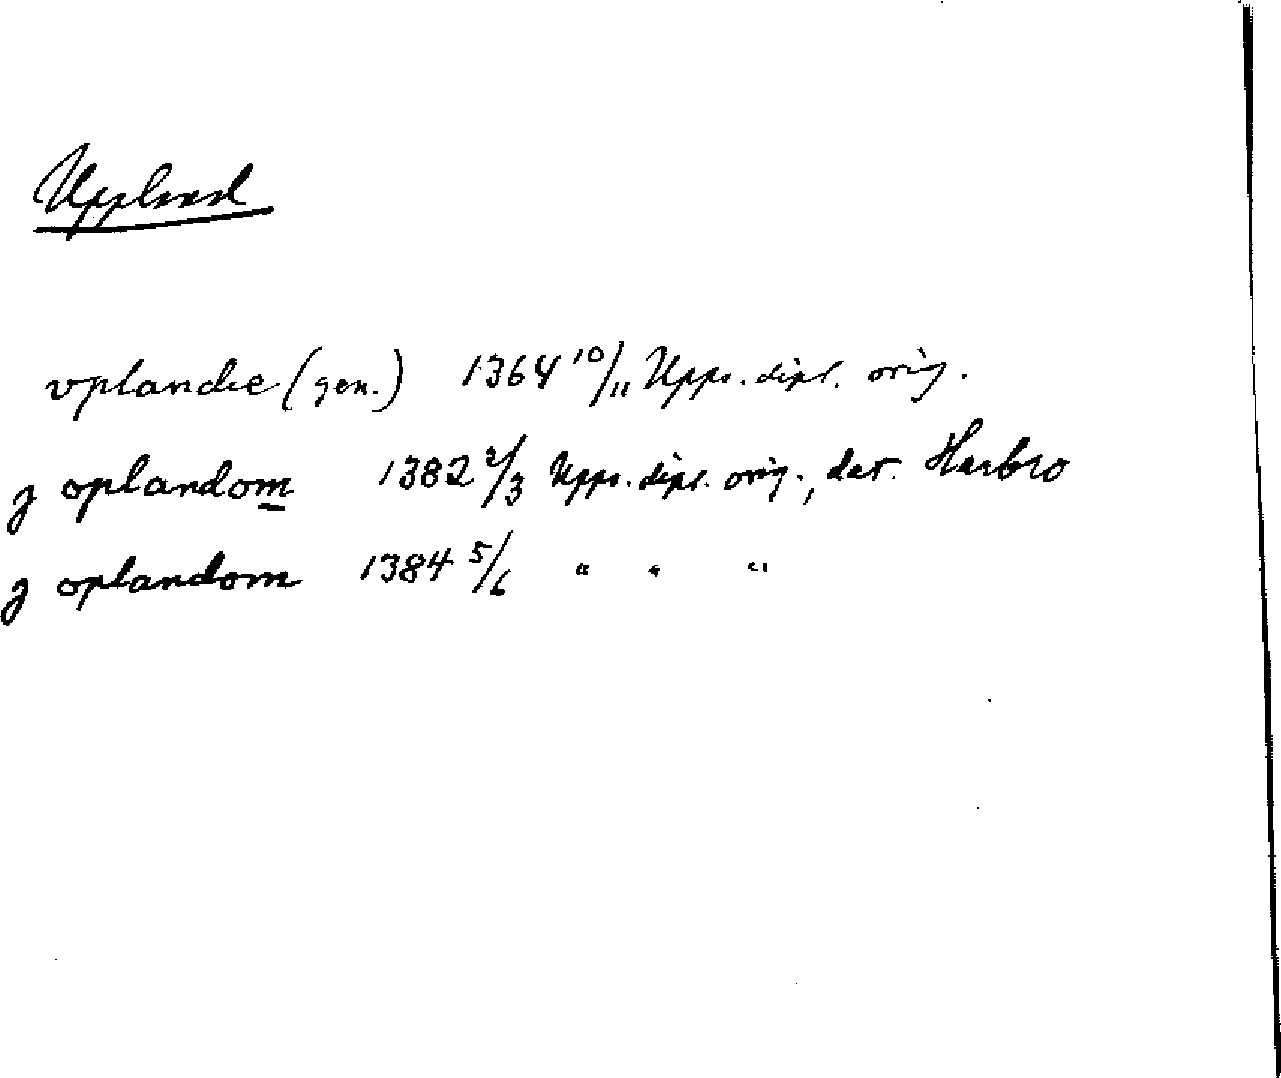 Uppland
vplandie (gen.) 1364 10/11 Upps. dipl. orig.
j oplandom 1382 2/3 Upps. dipl. orig., dat. Harbro
j oplandom 1384 5/6 " " "